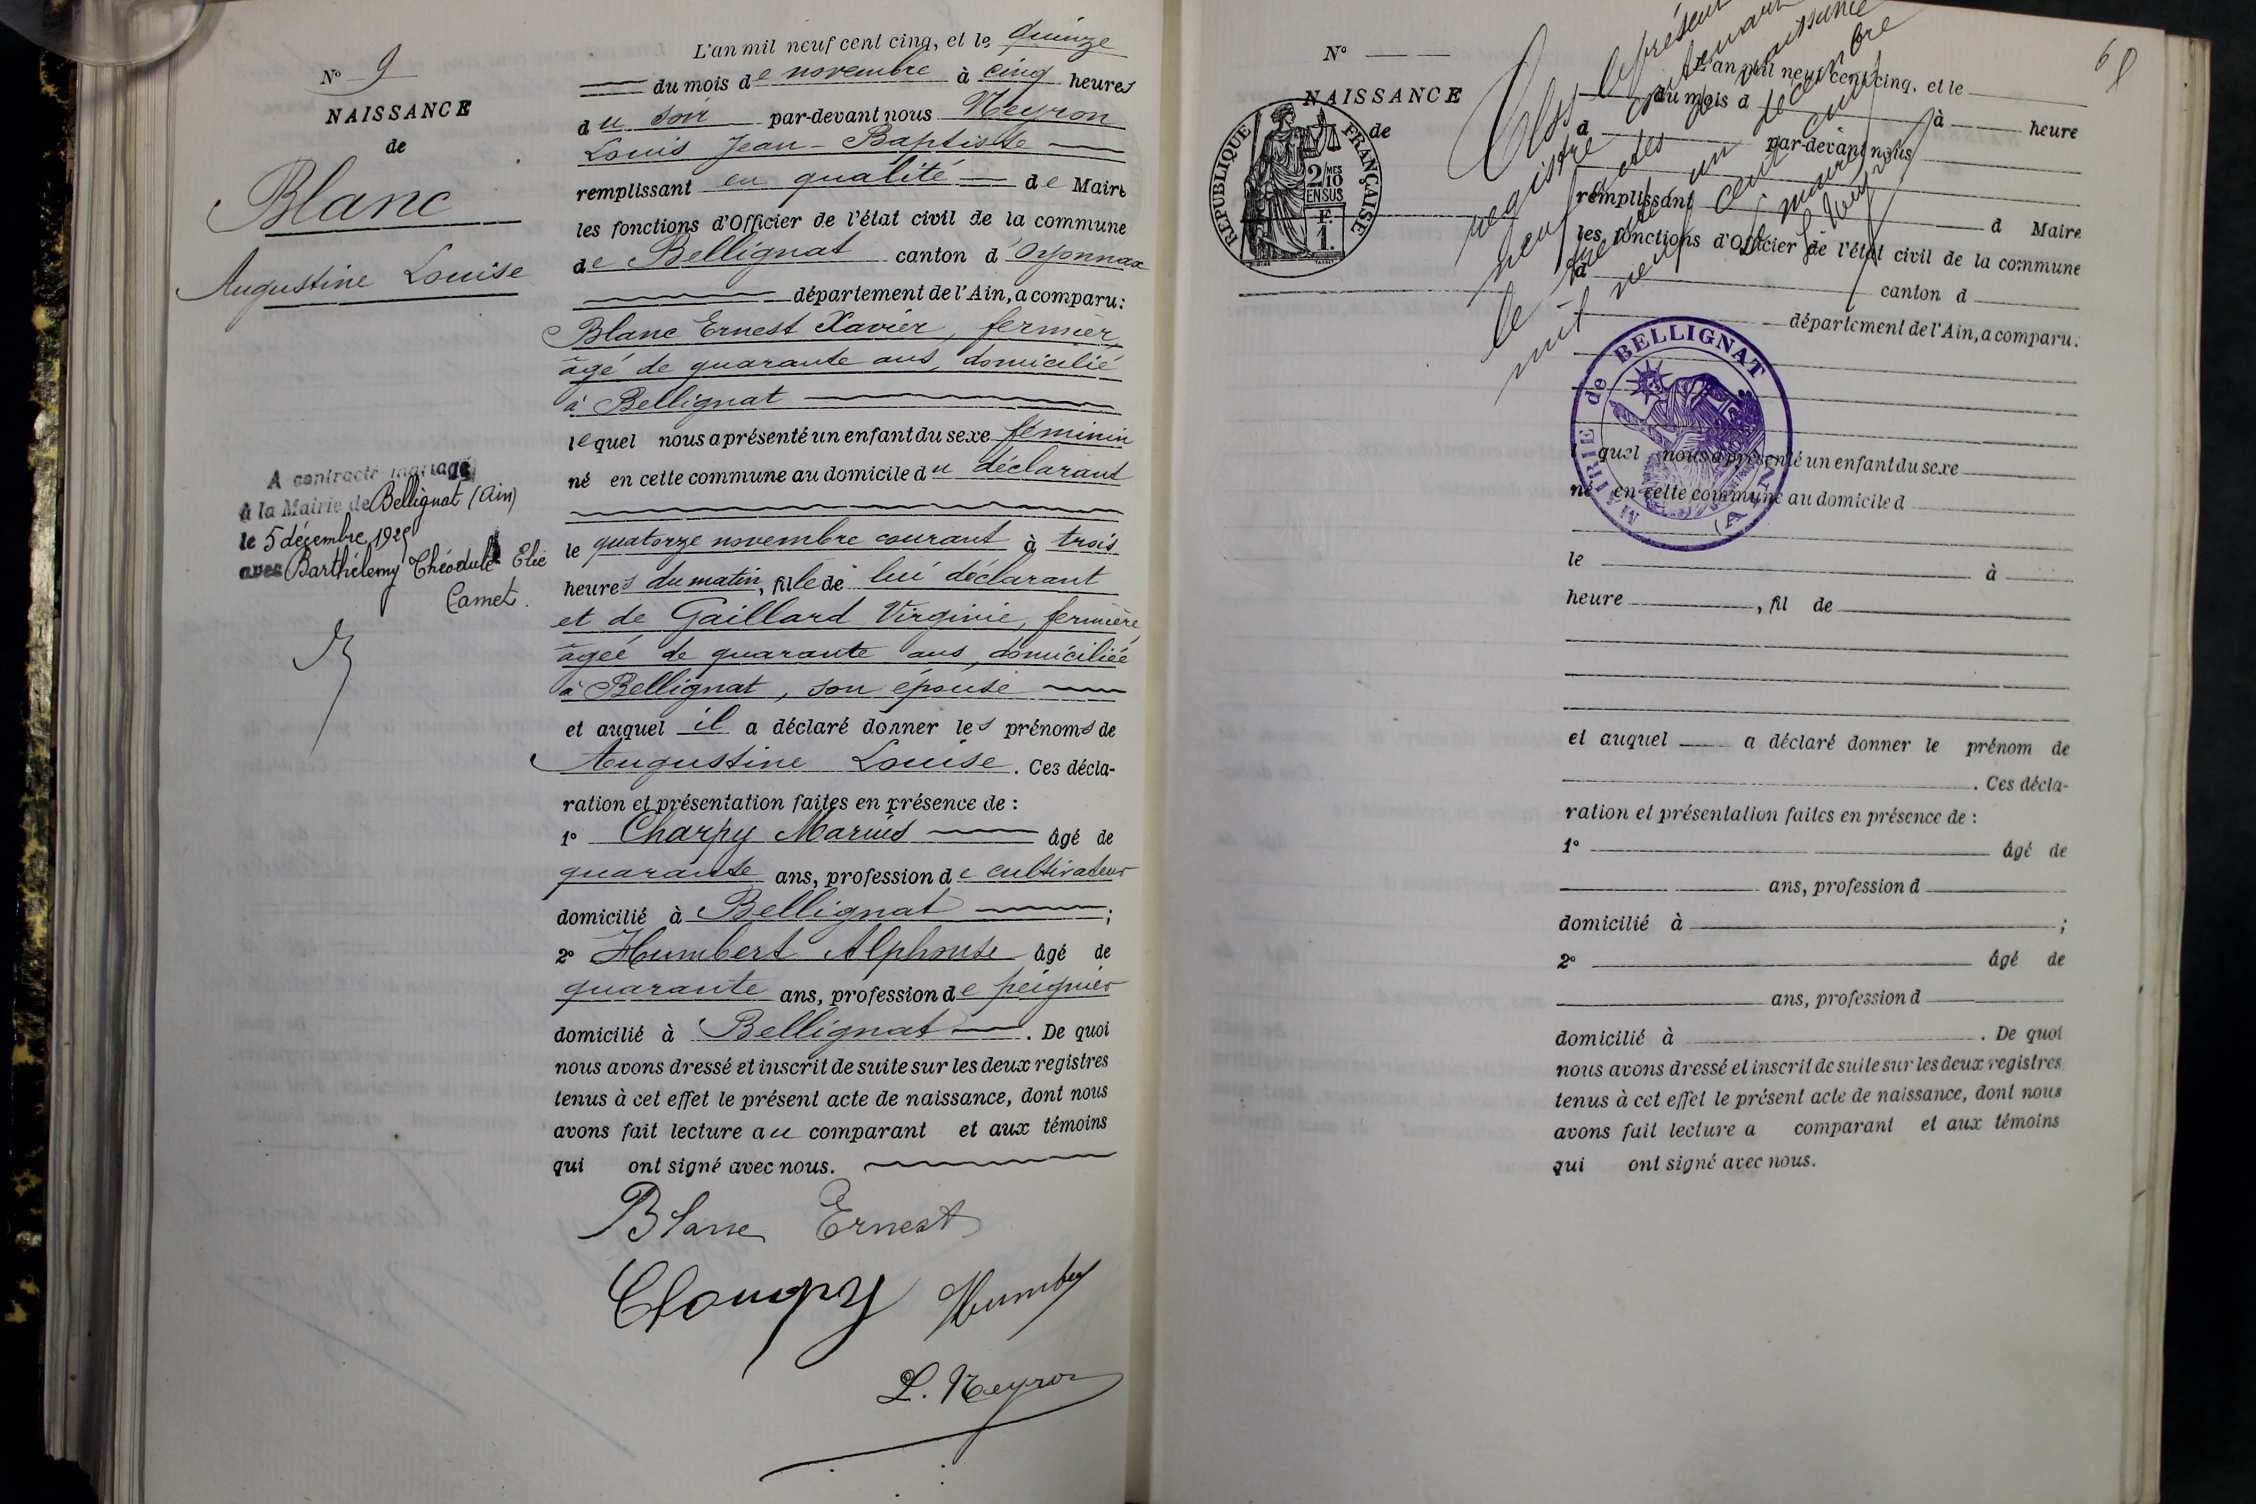 N° 9
NAISSANCE
de
Blanc
Augustine Louise
A contracté mariage
à la Mairie de Bellignat (Ain)
le 5 décembre 1925
avec Barthélemy Théodule Elie
Camet.
L'an mil neuf cent cinq, et le quinze
du mois de novembre à cinq heures
du soir par-devant nous Neyron
Louis Jean-Baptiste
remplissant en qualité de Maire
les fonctions d'Officier de l'état civil de la commune
de Bellignat canton d'Oyonnax
département de l'Ain, a comparu:
Blanc Ernest Xavier, fermier,
âgé de quarante ans, domicilié
à Bellignat
lequel nous a présenté un enfant du sexe féminin
né en cette commune au domicile du déclarant
le quatorze novembre courant à trois
heures du matin, fille de lui déclarant
et de Gaillard Virginie, fermière,
âgée de quarante ans, domiciliée
à Bellignat, son épouse
et auquel il a déclaré donner les prénoms de
Augustine Louise. Ces décla-
ration et présentation faites en présence de :
1° Charpy Marius âgé de
quarante ans, profession de cultivateur
domicilié à Bellignat ;
2° Humbert Alphonse âgé de
quarante ans, profession de peignier
domicilié à Bellignat. De quoi
nous avons dressé et inscrit de suite sur les deux registres
tenus à cet effet le présent acte de naissance, dont nous
avons fait lecture au comparant et aux témoins
qui ont signé avec nous.
Blanc Ernest
Charpy Humbert
L. Neyron
N°
NAISSANCE
de
RÉPUBLIQUE FRANÇAISE
2/10 MES
EN SUS
F.
1.
Clos le présent
registre contenant
neuf actes de naissance
le trente un décembre
mil neuf cent cinq
Le maire
L. Neyron
L'an mil neuf cent cinq, et le
du mois d à heure
d par-devant nous
remplissant d Maire
les fonctions d'Officier de l'état civil de la commune
d canton d
département de l'Ain, a comparu:
MAIRIE de BELLIGNAT (AIN)
l quel nous a présenté un enfant du sexe
né en cette commune au domicile d
le à
heure , fil de
et auquel a déclaré donner le prénom de
. Ces décla-
ration et présentation faites en présence de :
1° âgé de
ans, profession d
domicilié à ;
2° âgé de
ans, profession d
domicilié à . De quoi
nous avons dressé et inscrit de suite sur les deux registres
tenus à cet effet le présent acte de naissance, dont nous
avons fait lecture a comparant et aux témoins
qui ont signé avec nous.